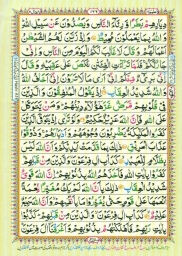 دِيَارِهِمْ بَطَرًا وَّرِئَآءَ النَّاسِ وَيَصُدُّوْنَ عَنْ سَبِيْلِ اللّٰهِ
وَاللّٰهُ بِمَا يَعْمَلُوْنَ مُحِيْطٌ وَاِذْ زَيَّنَ لَهُمُ الشَّيْطٰنُ
اَعْمَالَهُمْ وَقَالَ لَا غَالِبَ لَكُمُ الْيَوْمَ مِنَ النَّاسِ وَاِنِّيْ
جَارٌ لَّكُمْ فَلَمَّا تَرَآءَتِ الْفِئَتٰنِ نَكَصَ عَلٰى عَقِبَيْهِ وَقَالَ
اِنِّيْ بَرِيْٓءٌ مِّنْكُمْ اِنِّيْٓ اَرٰى مَا لَا تَرَوْنَ اِنِّيْٓ اَخَافُ اللّٰهَ وَاللّٰهُ
شَدِيْدُ الْعِقَابِ اِذْ يَقُوْلُ الْمُنٰفِقُوْنَ وَالَّذِيْنَ
فِيْ قُلُوْبِهِمْ مَّرَضٌ غَرَّ هٰٓؤُلَآءِ دِيْنُهُمْ وَمَنْ يَّتَوَكَّلْ عَلَى اللّٰهِ
فَاِنَّ اللّٰهَ عَزِيْزٌ حَكِيْمٌ وَلَوْ تَرٰٓى اِذْ يَتَوَفَّى الَّذِيْنَ
كَفَرُوا الْمَلٰٓئِكَةُ يَضْرِبُوْنَ وُجُوْهَهُمْ وَاَدْبَارَهُمْ وَذُوْقُوْا
عَذَابَ الْحَرِيْقِ ذٰلِكَ بِمَا قَدَّمَتْ اَيْدِيْكُمْ وَاَنَّ اللّٰهَ لَيْسَ
بِظَلَّامٍ لِّلْعَبِيْدِ كَدَاْبِ اٰلِ فِرْعَوْنَ وَالَّذِيْنَ مِنْ قَبْلِهِمْ
كَفَرُوْا بِاٰيٰتِ اللّٰهِ فَاَخَذَهُمُ اللّٰهُ بِذُنُوْبِهِمْ اِنَّ اللّٰهَ قَوِيٌّ
شَدِيْدُ الْعِقَابِ ذٰلِكَ بِاَنَّ اللّٰهَ لَمْ يَكُ مُغَيِّرًا نِّعْمَةً
اَنْعَمَهَا عَلٰى قَوْمٍ حَتّٰى يُغَيِّرُوْا مَا بِاَنْفُسِهِمْ وَاَنَّ اللّٰهَ
سَمِيْعٌ عَلِيْمٌ كَدَاْبِ اٰلِ فِرْعَوْنَ وَالَّذِيْنَ مِنْ قَبْلِهِمْ كَذَّبُوْا